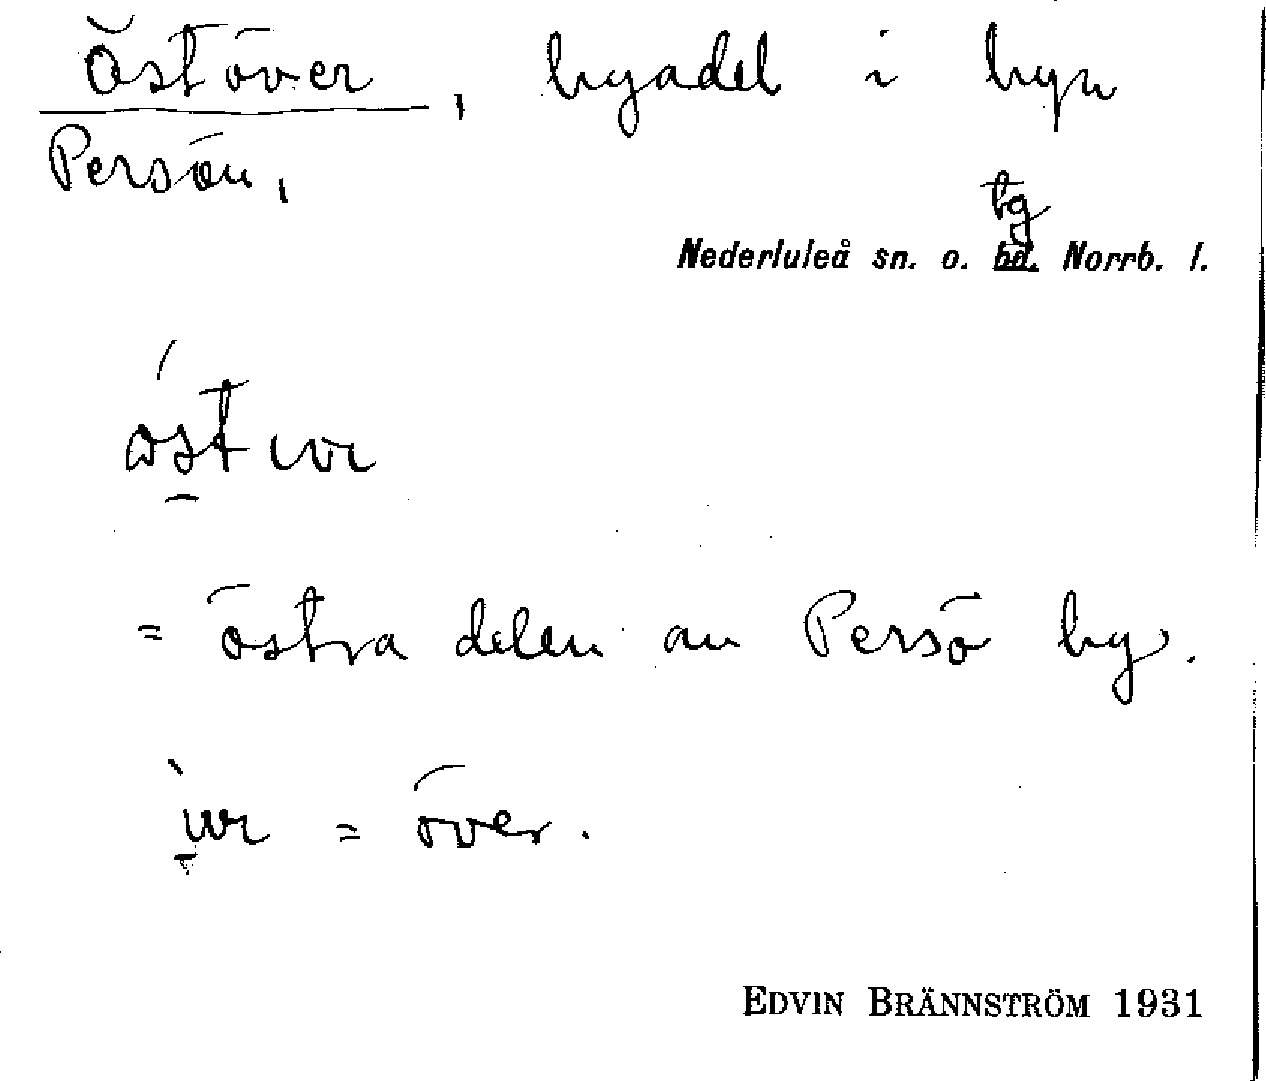 Öst över, byadel i byn
Persön,
tg
Nederluleå sn. o. bd. Norrb. l.
= östra delen av Persö by.
= över.
EDVIN BRÄNNSTRÖM 1931